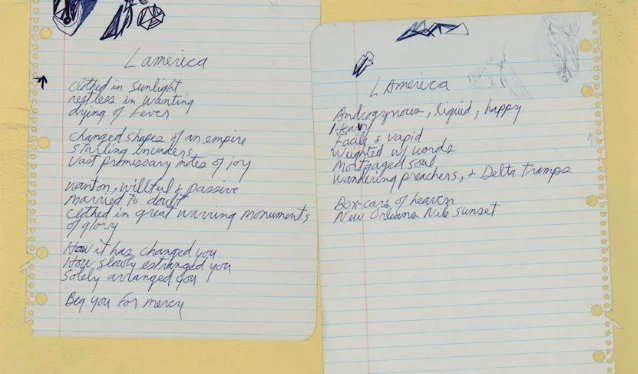 Lamerica
Clothed in sunlight
restless in wanting
dying of fever
Changed shapes of an empire
Starling invaders
Vast promissory notes of joy
Wanton, willful & passive
Married to doubt
Clothed in great warring monuments
of glory
How it has changed you
How slowly estranged you
Solely arranged you
Beg you for mercy
LAmerica
Androgynous, liquid, happy
Heavy
Facile & vapid
Weighted w/ words
Mortgaged soul
Wandering preachers, & Delta tramps
Box-cars of heaven
New Orleans Nile Sunset